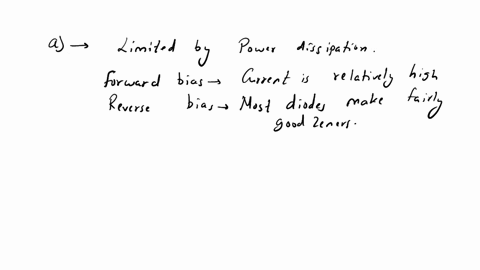 a) → Limited by Power dissipation.
forward bias → Current is relatively high
Reverse bias → Most diodes make fairly
good Zeners.